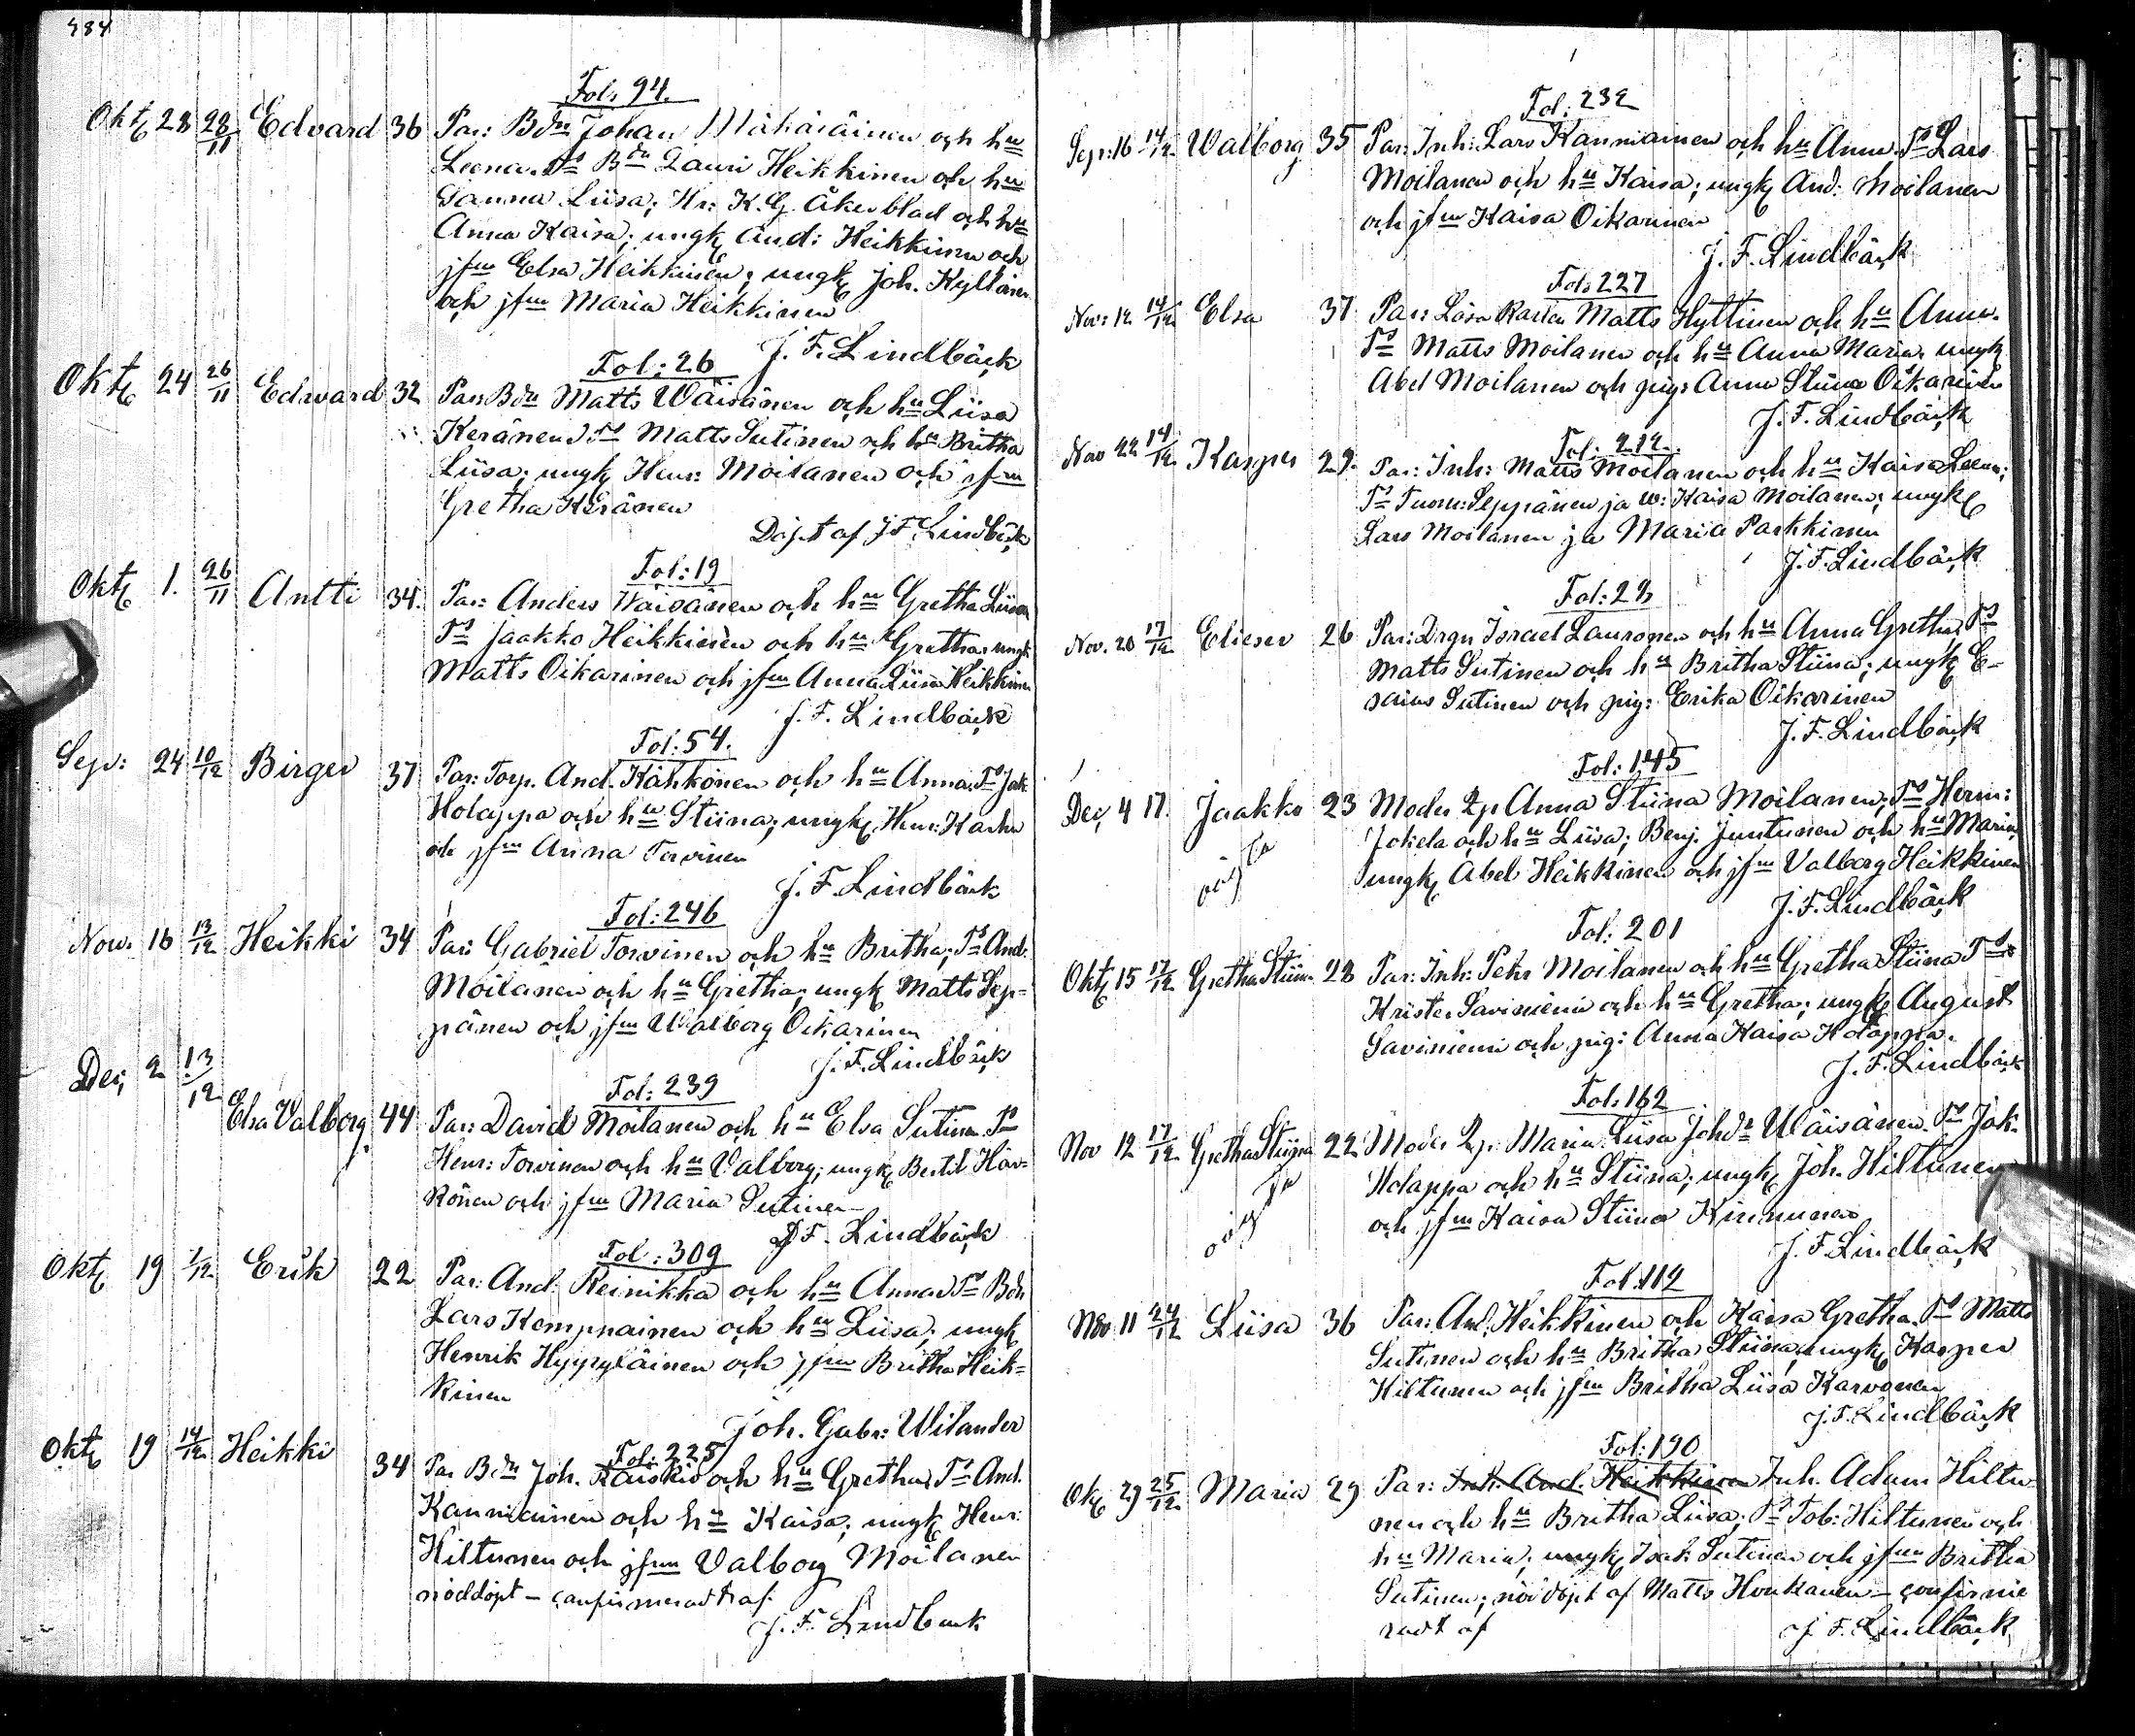 484
Fol: 94.
Okt 28 28/11 Edvard 36 Par: Bdn Johan Mähäräinen och hu
Leena. Ts Bdn Lauri Heikkinen och hu
Sanna Liisa; Hr: K. G. Åkerblad och hu
Anna Kaisa; ungk And: Heikkinen och
jfm Elsa Heikkinen; ungk Joh. Kyllönen
och jfm Maria Heikkinen
J. F. Lindbäck
Fol: 26
Okt 24 26/11 Edward 32 Par: Bdn Matts Wäisänen och hu Liisa
Keränen; Ts Matts Sutinen och hu Britha
Liisa; ungk Henr: Moilanen och jfm
Gretha Keränen
Döpt af J F Lindbäck
Fol: 19
Okt 1. 26/11 Antti 34. Par: Anders Wäisänen och hu Gretha Liisa
Ts Jaakko Heikkinen och hu Gretha; ungk
Matts Oikarinen och jfm Anna Liisa Heikkinen
J. F. Lindbäck
Fol: 54.
Sep: 24 10/12 Birger 37 Par: Torp. And. Kähkönen och hu Anna. Ts Jak
Holappa och hu Stiina; ungk Henr: Karhu
och jfm Anna Torvinen
J. F. Lindbäck
Fol: 246
Nov. 16 13/12 Heikki 34 Par: Gabriel Torvinen och hu Britha; Ts And:
Moilanen och hu Gretha; ungk Matts Sep=
pänen och jfm Walborg Oikarinen
J. F. Lindbäck
Fol: 239
Dec; 2 13/12 Elsa Valborg 44 Par: David Moilanen och hu Elsa Sutinen Ts
Henr: Torvinen och hu Valborg; ungk Bertil Här-
könen och jfm Maria Sutinen
J F. Lindbäck
Fol: 309
Okt 19 1/12 Erik 22 Par: And: Reinikka och hu Anna Ts Bdn
Lars Kemppainen och hu Liisa; ungk
Henrik Hyyryläinen och jfm Britha Heik=
kinen
Joh. Gabr: Wilander
Fol: 225
Okt 19 14/12 Heikki 34 Par Bdn Joh. Raiskio och hu Gretha; Ts And.
Kanniainen och hu Kaisa; ungk Henr:
Hiltunen och jfm Valborg Moilanen
nöddöpt - confirmeradt af
J. F. Lindback
Fol: 232
Sep: 16 14/12 Walborg 35 Par: Inh: Lars Kanniainen och hu Anna. Ts Lars
Moilanen och hu Kaisa; ungk And: Moilanen
och jfm Kaisa Oikarinen
J. F. Lindbäck
Fol: 227
Nov: 12 14/12 Elsa 37 Par: Lösa Karlen Matts Hyttinen och hu Anna.
Ts Matts Moilanen och hu Anna Maria; ungk
Abel Moilanen och pig: Anna Stiina Oikarinen
J. F. Lindbäck
Fol: 212.
Nov 22 14/12 Kasper 29. Par: Inh: Matts Moilanen och hu Kaisa Leena;
Ts Tuom: Seppänen ja w: Kaisa Moilanen; ungk
Lars Moilanen ja Maria Parkkinen
J. F. Lindbäck
Fol: 23
Nov. 20 17/12 Elieser 26 Par: Drgn Israel Lauronen och hu Anna Gretha Ts
Matts Sutinen och hu Britha Stiina; ungk E-
saias Sutinen och pig: Erika Oikarinen
J. F. Lindbäck
Fol: 145
Dec, 4 17. Jaakko 23 Moder Qp Anna Stiina Moilanen; Ts Herm:
oägta Jokela och hu Liisa; Benj. Juntunen och hu Maria
ungk Abel Heikkinen och jfm Valborg Heikkinen
J. F. Lindbäck
Fol: 201
Okt 15 17/12 Gretha Stiina 28 Par: Inh: Petr Moilanen och hu Gretha Stiina Ts
Krister Saviniemi och hu Gretha; ungk August
Saviniemi och pig: Anna Kaisa Holappa.
J. F. Lindbäck
Fol: 162
Nov 12 17/12 Gretha Stiina 22 Moder Qp: Maria Liisa Johdr Wäisänen. Ts Jak.
oägta Holappa och hu Stiina; ungk Joh. Hiltunen
och jfm Kaisa Stiina Kinnunen
J. F. Lindbäck
Fol: 112
Nov 11 24/12 Liisa 36 Par: And. Heikkinen och Kaisa Gretha. Ts Matts
Sutinen och hu Britha Stiina; ungk Kasper
Hiltunen och jfm Britha Liisa Karvonen
J. F. Lindbäck
Fol: 190
Okt 29 25/12 Maria 29 Par: Inh. And. Heikkinen Inh. Adam Hiltu-
nen och hu Britha Liisa; Ts Tob: Hiltunen och
hu Maria; ungk Isak Sutinen och jfm Britha
Sutinen; nöddöpt af Matts Honkanen - confirme
radt af
J. F. Lindbäck